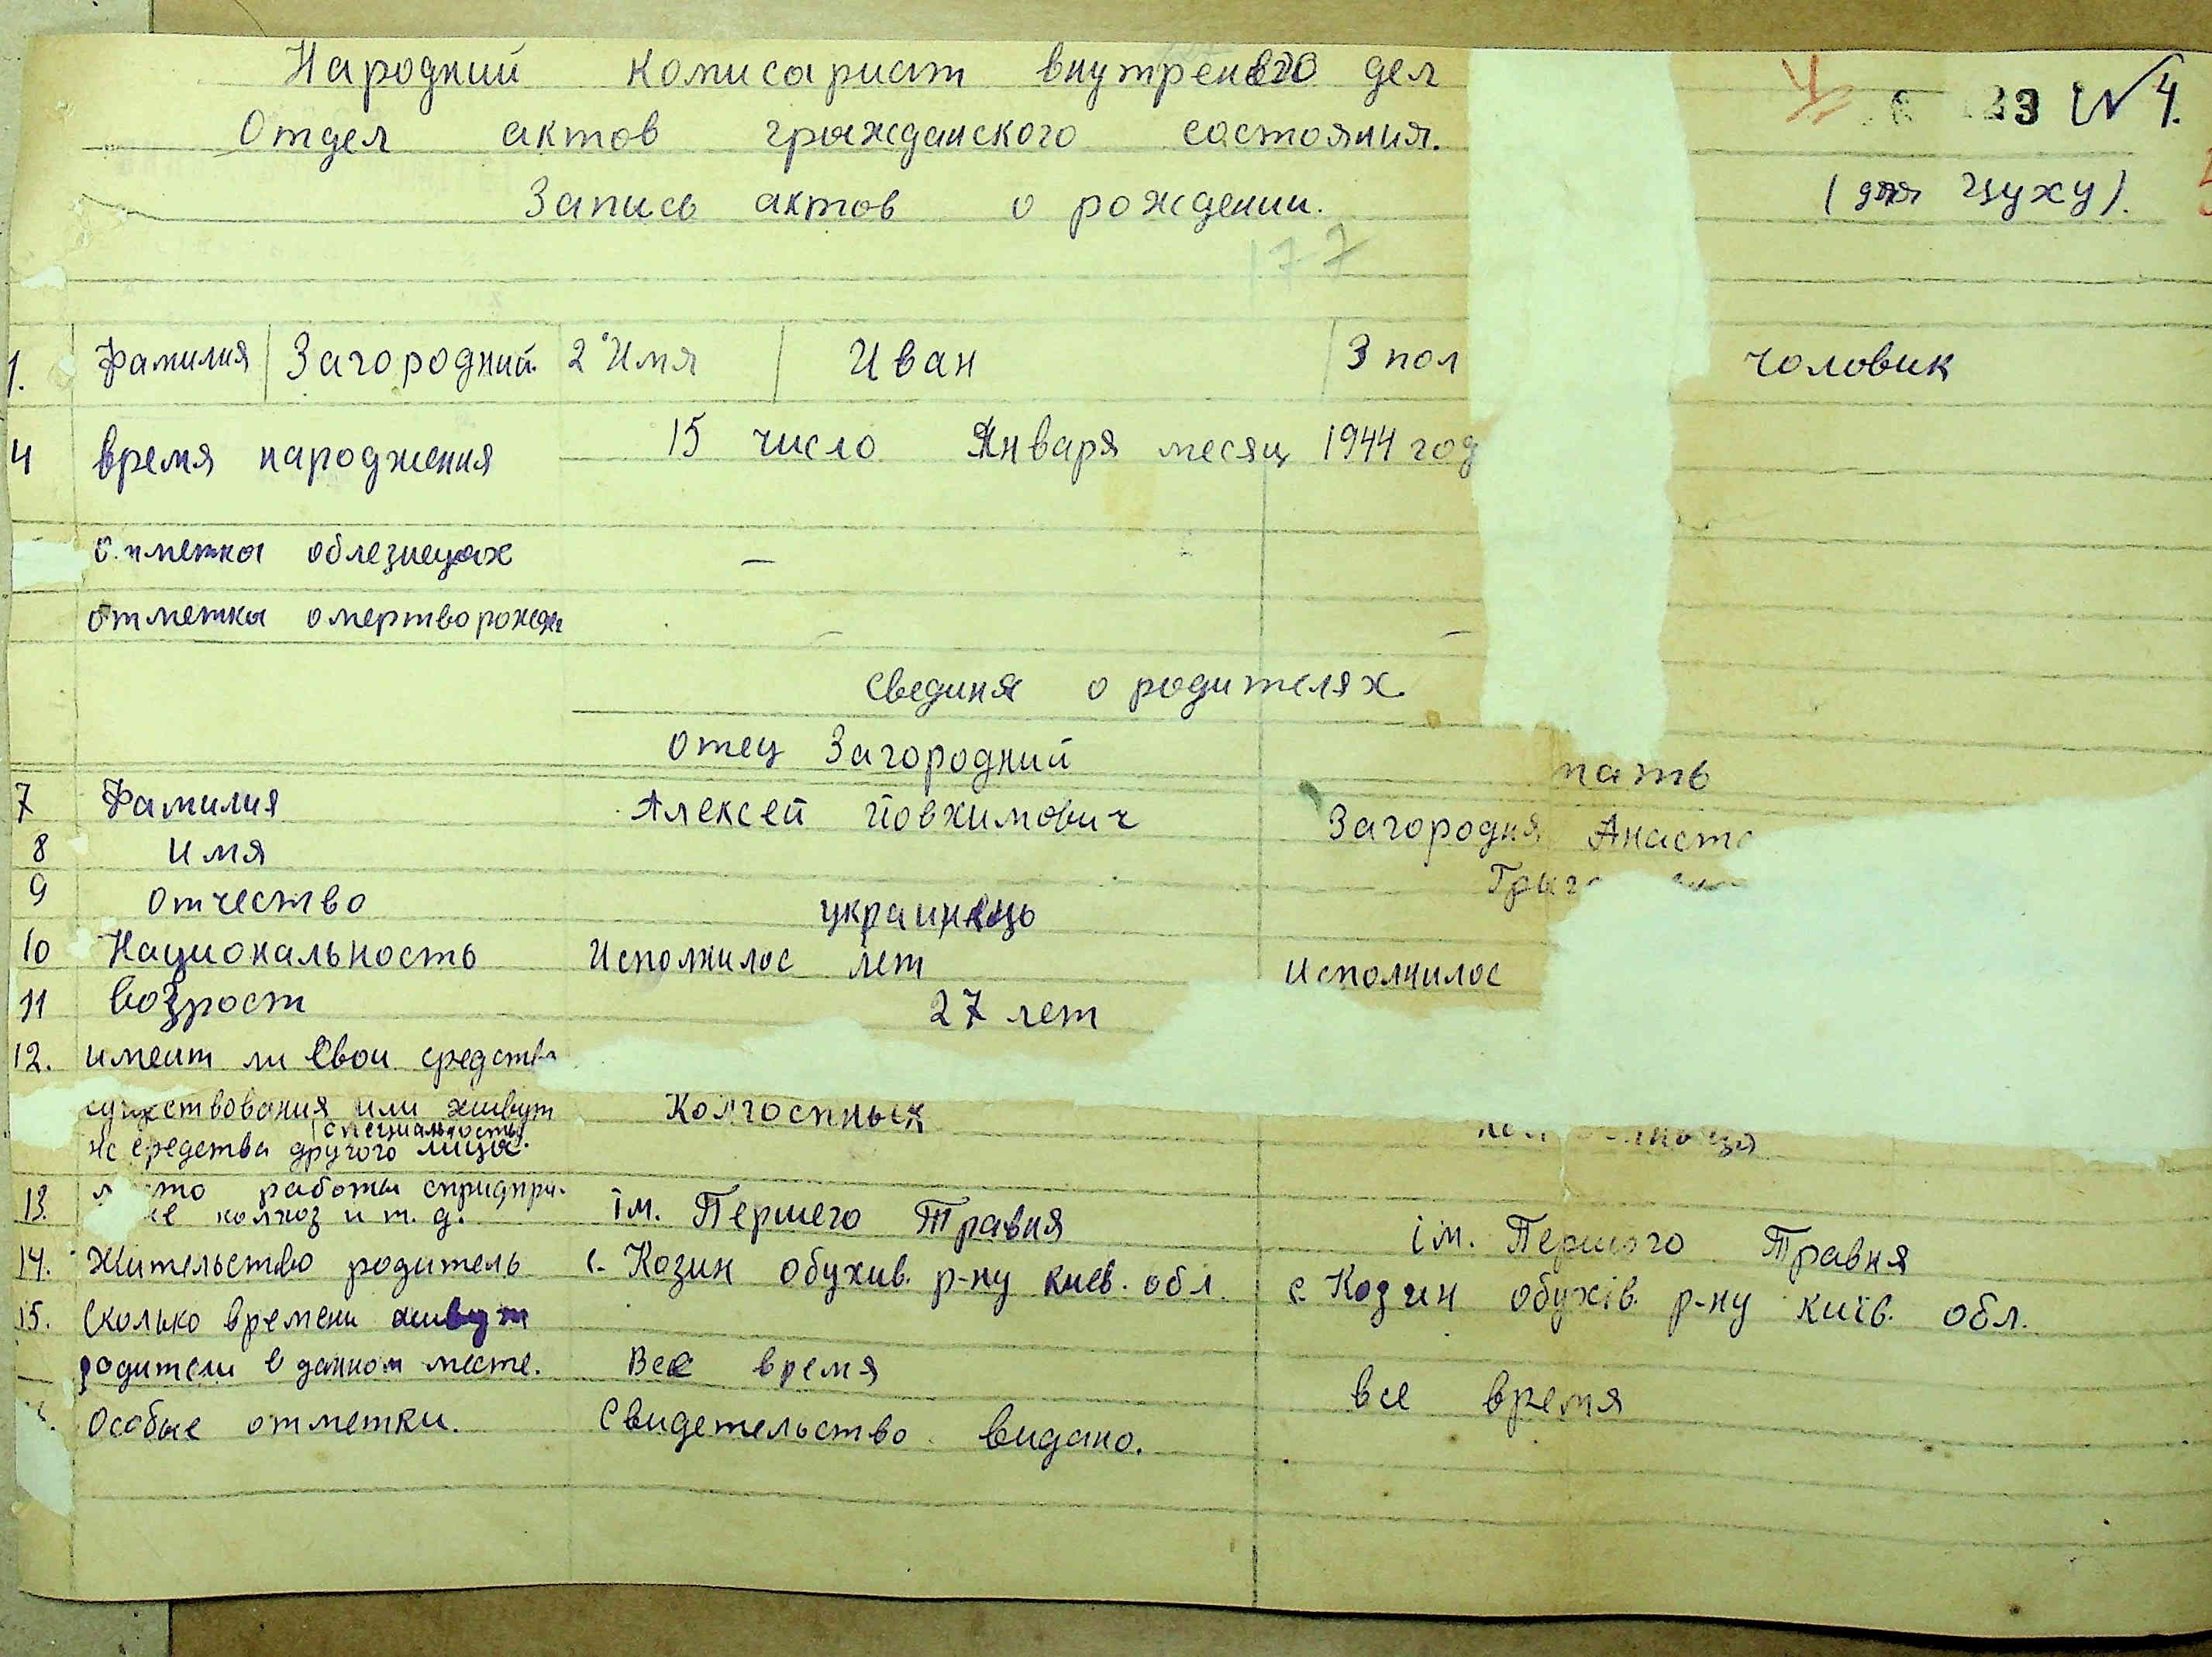 Народний комисариат внутренего дел
Отдел актов гражданского состояния.
Запись актов о рождении.
№ 4.
(для Цуху).
177
1. Фамилия Загородний 2 Имя Иван 3 пол чоловик
4 время народжения 15 число Января месяц 1944 год
облезнецах –
отметка о мертворожден – –
свединя о родителях
отец Загородний мать
7 Фамилия Алексей Йовхимович Загородня
8 Имя
9 отчество украинець
10 Национальность Исполнилос лет Исполнилос
11 возраст 27 лет
12. имеит ли свои средства
существования или живут Колгоспных
специальность
на средства другого лица.
13. работы спридпри.
колхоз и т. д. ім. Першего Травня ім. Першого Травня
14. жительство родитель с. Козин обухив. р-ну киев. обл. с. Козин обухів. р-ну київ. обл.
15. Сколько времени живут
родители в данном месте. Все время все время
Особые отметки. Свидетельство видано.